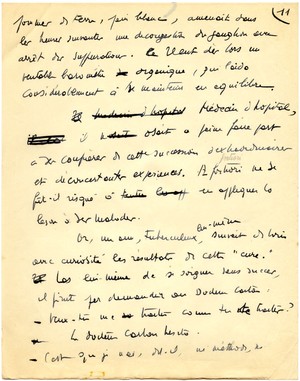 11
pommes de terre, pain blanc, amenait dans
les heures suivantes une décongestion du ganglion avec
arrêt des suppurations. Ce devint dès lors un
véritable baromètre organique, qui l'aida
considérablement à se maintenir en équilibre.
Médecin d'hôpital,
il osait à peine faire part
à ses confrères de cette succession d'extraordinaires
et déconcertantes expériences. A fortiori ne se
fût-il risqué à en appliquer la
leçon à ses malades.
Or, un ami, tuberculeux lui-même, suivait de loin
avec curiosité les résultats de cette "cure".
Las lui-même de se soigner sans succès,
il finit par demander au Docteur Carton.
- Veux-tu me traiter comme tu te traites ?
Le docteur Carton hésita.
- C'est que je n'ai, dit-il, ni méthode, ni